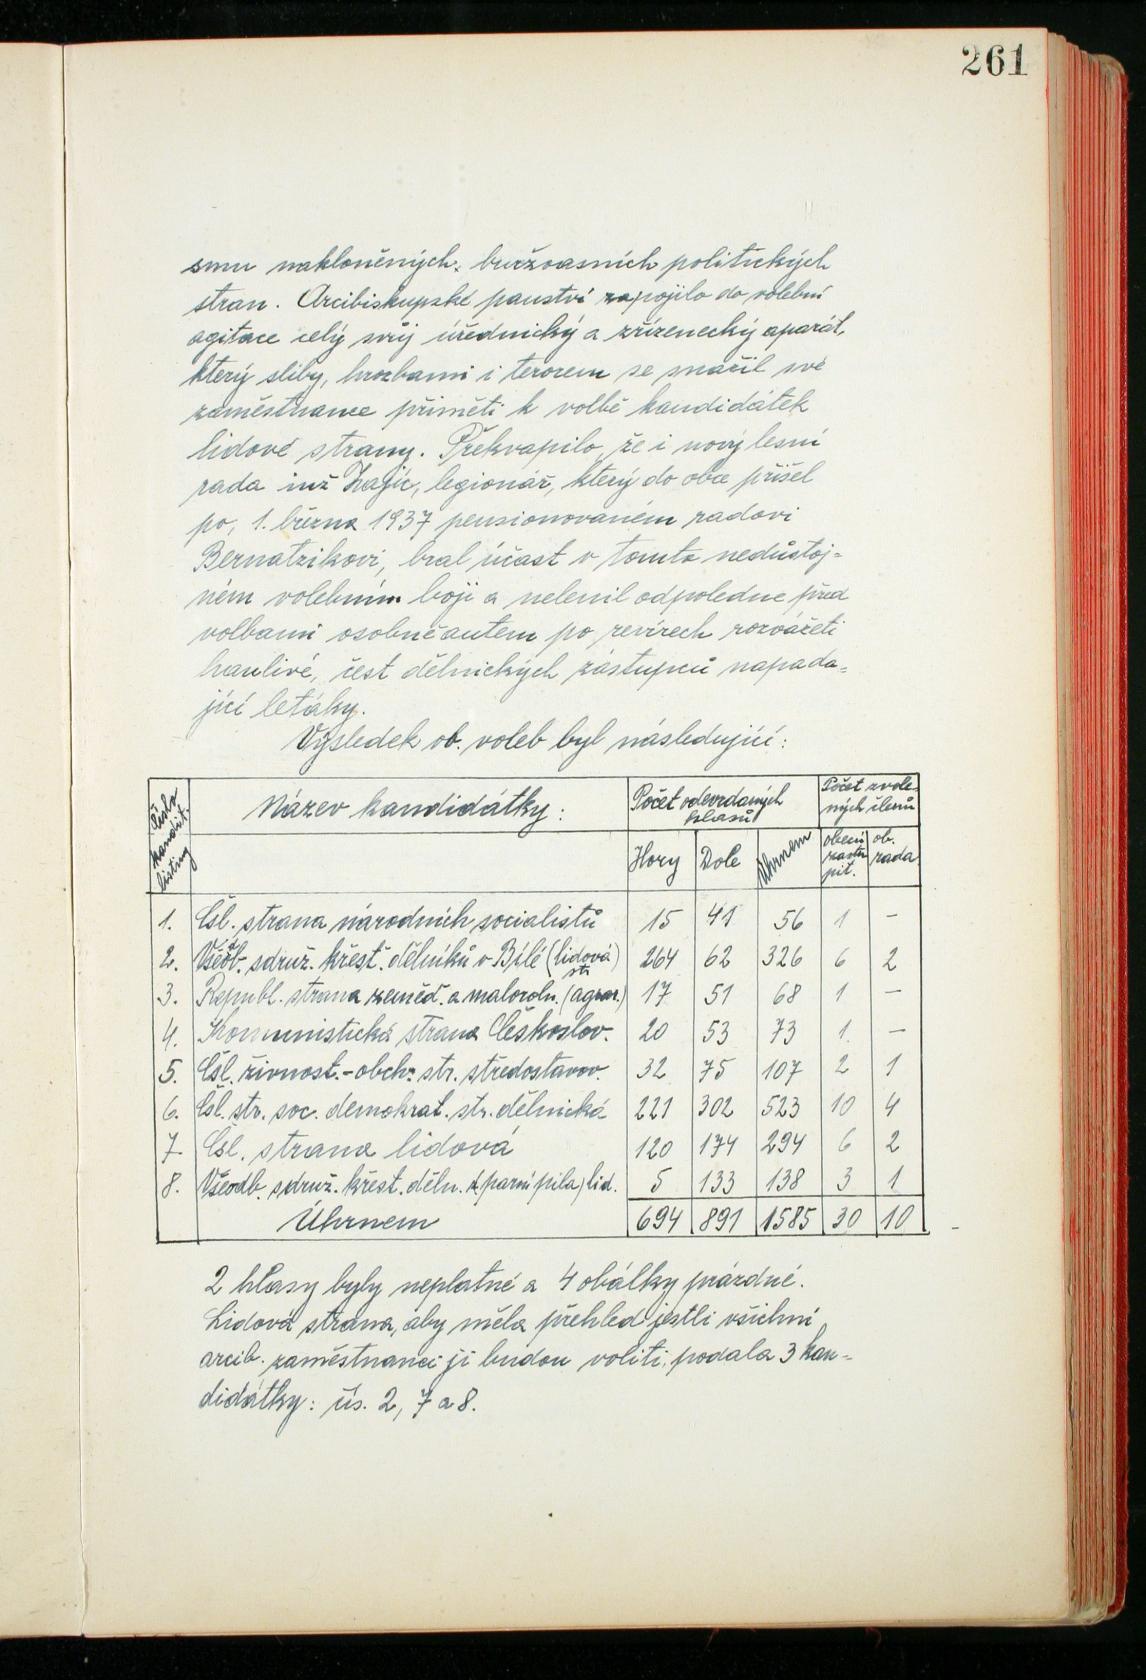 261
smu nakloněných buržoasních politických
stran. Arcibiskupské panství zapojilo do volební
agitace celý svůj úřednický a zřízenecký aparát,
který sliby, hrozbami i terorem se snažil své
zaměstnance přiměti k volbě kandidátek
lidové strany. Překvapilo, že i nový lesní
rada inž Zajíc, legionář, který do obce přišel
po, 1. března 1937 pensionovaném radovi
Bernatzikovi, bral účast v tomto nedůstoj=
ném volebním boji a nelenil odpoledne před
volbami osobně autem po revírech rozvážeti
hanlivé, čest dělnických zástupců napada=
jící letáky.
Výsledek ob. voleb byl následující:
Číslo kandit. listiny Název kandidátky: Počet odevzdaných hlasů Počet zvole-ných členů
Hory Dole Úhrnem obecní zastupit. ob. rada
1. Čsl. strana národních socialistů 15 41 56 1 –
2. Všeob. sdruž. křest. dělníků v Bílé (lidová str.) 264 62 326 6 2
3. Republ. strana zeměd. a maloroln. (agrar.) 17 51 68 1 –
4. Komunistická strana Českoslov. 20 53 73 1. –
5. Čsl. živnost.-obch. str. středostavov. 32 75 107 2 1
6. Čsl. str. soc. demokrat. str. dělnická 221 302 523 10 4
7. Čsl. strana lidová 120 174 294 6 2
8. Všeodb. sdruž. křest. děln. (parní pila) lid. 5 133 138 3 1
Úhrnem 694 891 1585 30 10
2 hlasy byly neplatné a 4 obálky prázdné.
Lidová strana, aby měla přehled jestli všichni
arcib. zaměstnanci ji budou voliti, podala 3 kan-
didátky: čís. 2, 7 a 8.